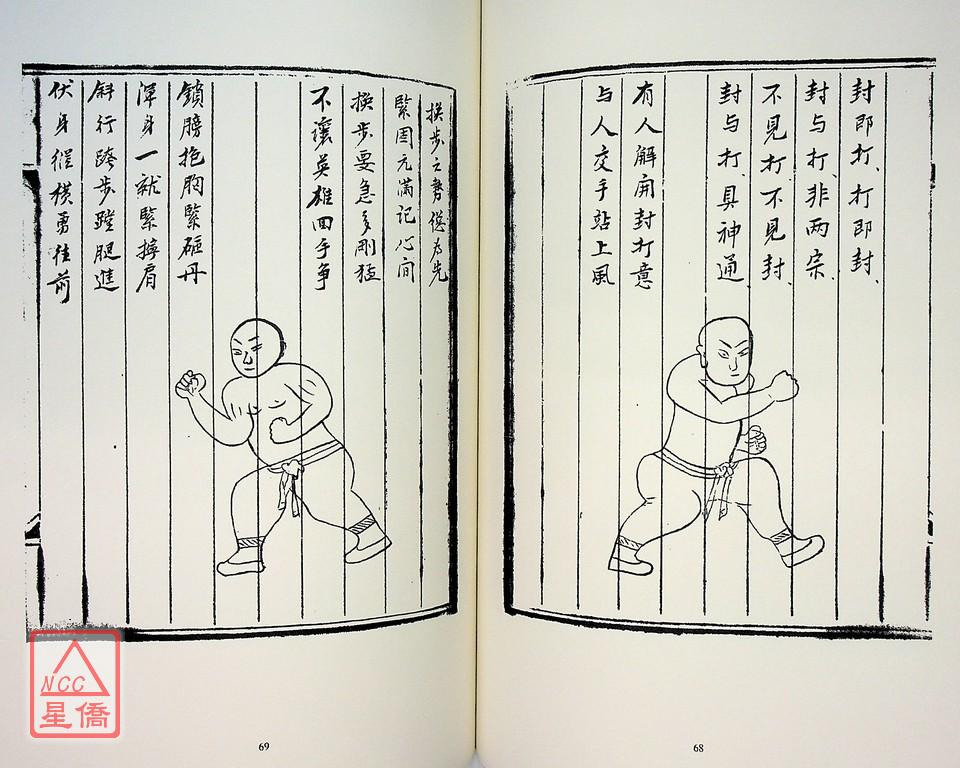 封即打、打即封、
封与打、非两宗、
不見打、不見封、
封与打、具神通、
有人解開封打意
与人交手站上風
68
换步之势偬为先
緊固元滿记心间
换步要急多剛猛
不讓英雄回手争
鎖膀抱胸緊砸丹
渾身一就緊擰肩
斜行跨步蹚腿進
伏身縱横勇往前
69
NCC
星僑